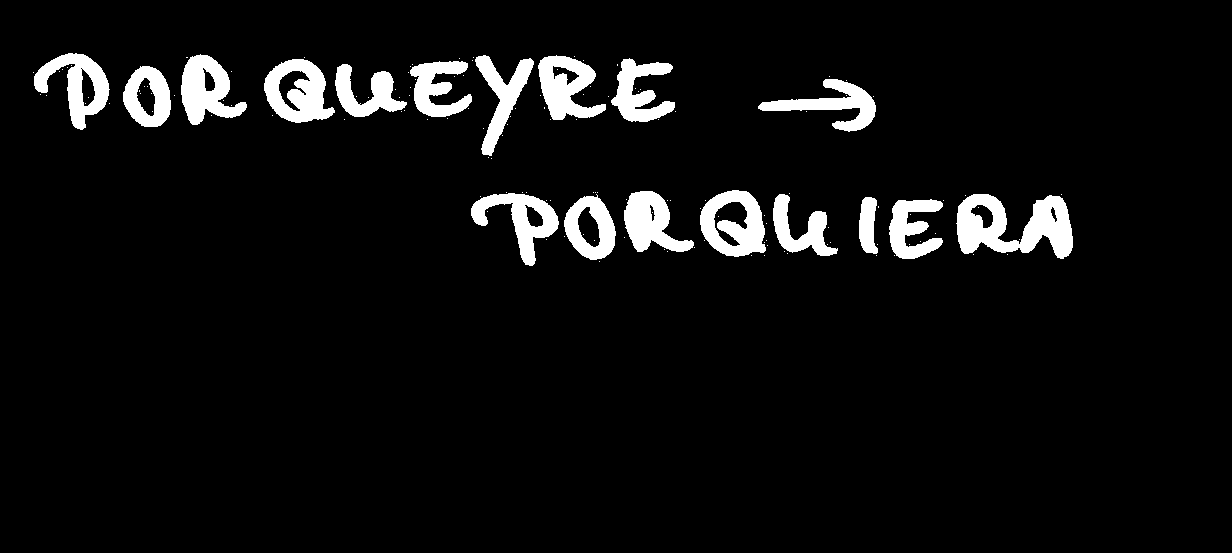 PORQUEYRE →
PORQUIERA